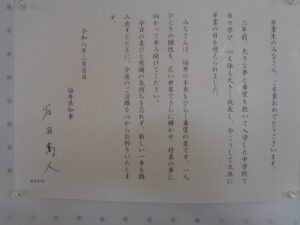 卒業生のみなさん、ご卒業おめでとうございます。
三年前、大きな夢と希望を抱いて入学した中学校で
日々学び、心も体も大きく成長し、今こうして立派に
卒業の日を迎えられました。
みなさんは、福井の未来をひらく希望の星です。一人
ひとりの個性を、広い世界でさらに輝かせ、将来の夢に
向かって歩み続けてください。
今日の喜びと感謝の気持ちを忘れず、新しい一歩を踏
み出すとともに、今後のご活躍を心からお祈りいたしま
す。
令和八年三月吉日
福井県知事
石田嵩人